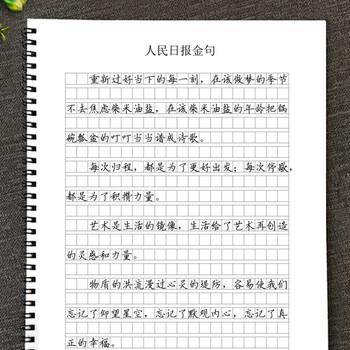 人民日报金句
重新过好当下的每一刻，在该做梦的季节
不去焦虑柴米油盐，在该柴米油盐的年龄把锅
碗瓢盆的叮叮当当谱成诗歌。
每次归程，都是为了更好出发；每次停歇，
都是为了积攒力量。
艺术是生活的镜像，生活给了艺术再创造
的灵感和力量。
物质的洪流漫过心灵的堤防，容易使我们
忘记了仰望星空，忘记了默观内心，忘记了真
正的幸福。